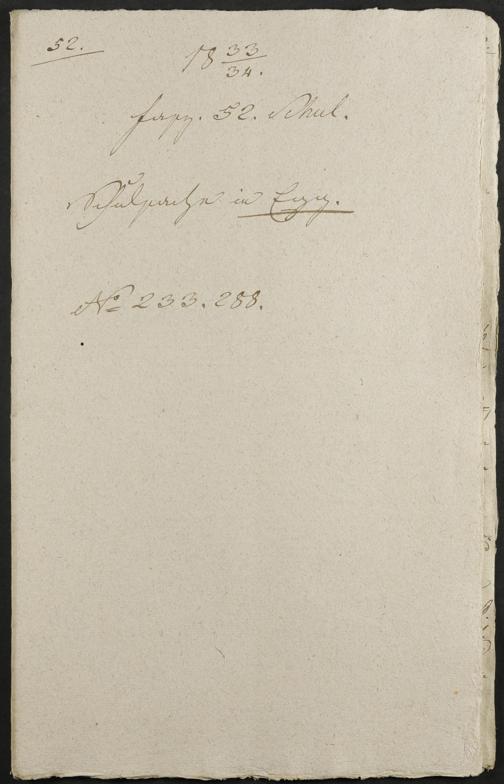 52.
18 33/34.
Fasz. 52. Schul.
Schulsache in Egg.
No 233. 288.